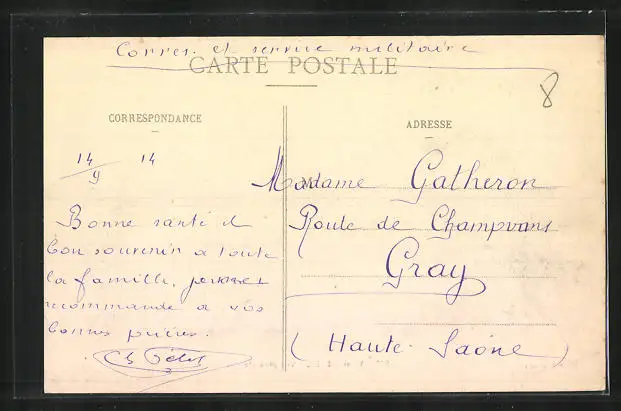 Corres. et service militaire
CARTE POSTALE
8
CORRESPONDANCE
ADRESSE
14/9 14
Madame Gatheron
Route de Champvans
Gray
(Haute-Saône)
Bonne santé et
bon souvenir a toute
la famille,
recommande a vos
bonnes prières.